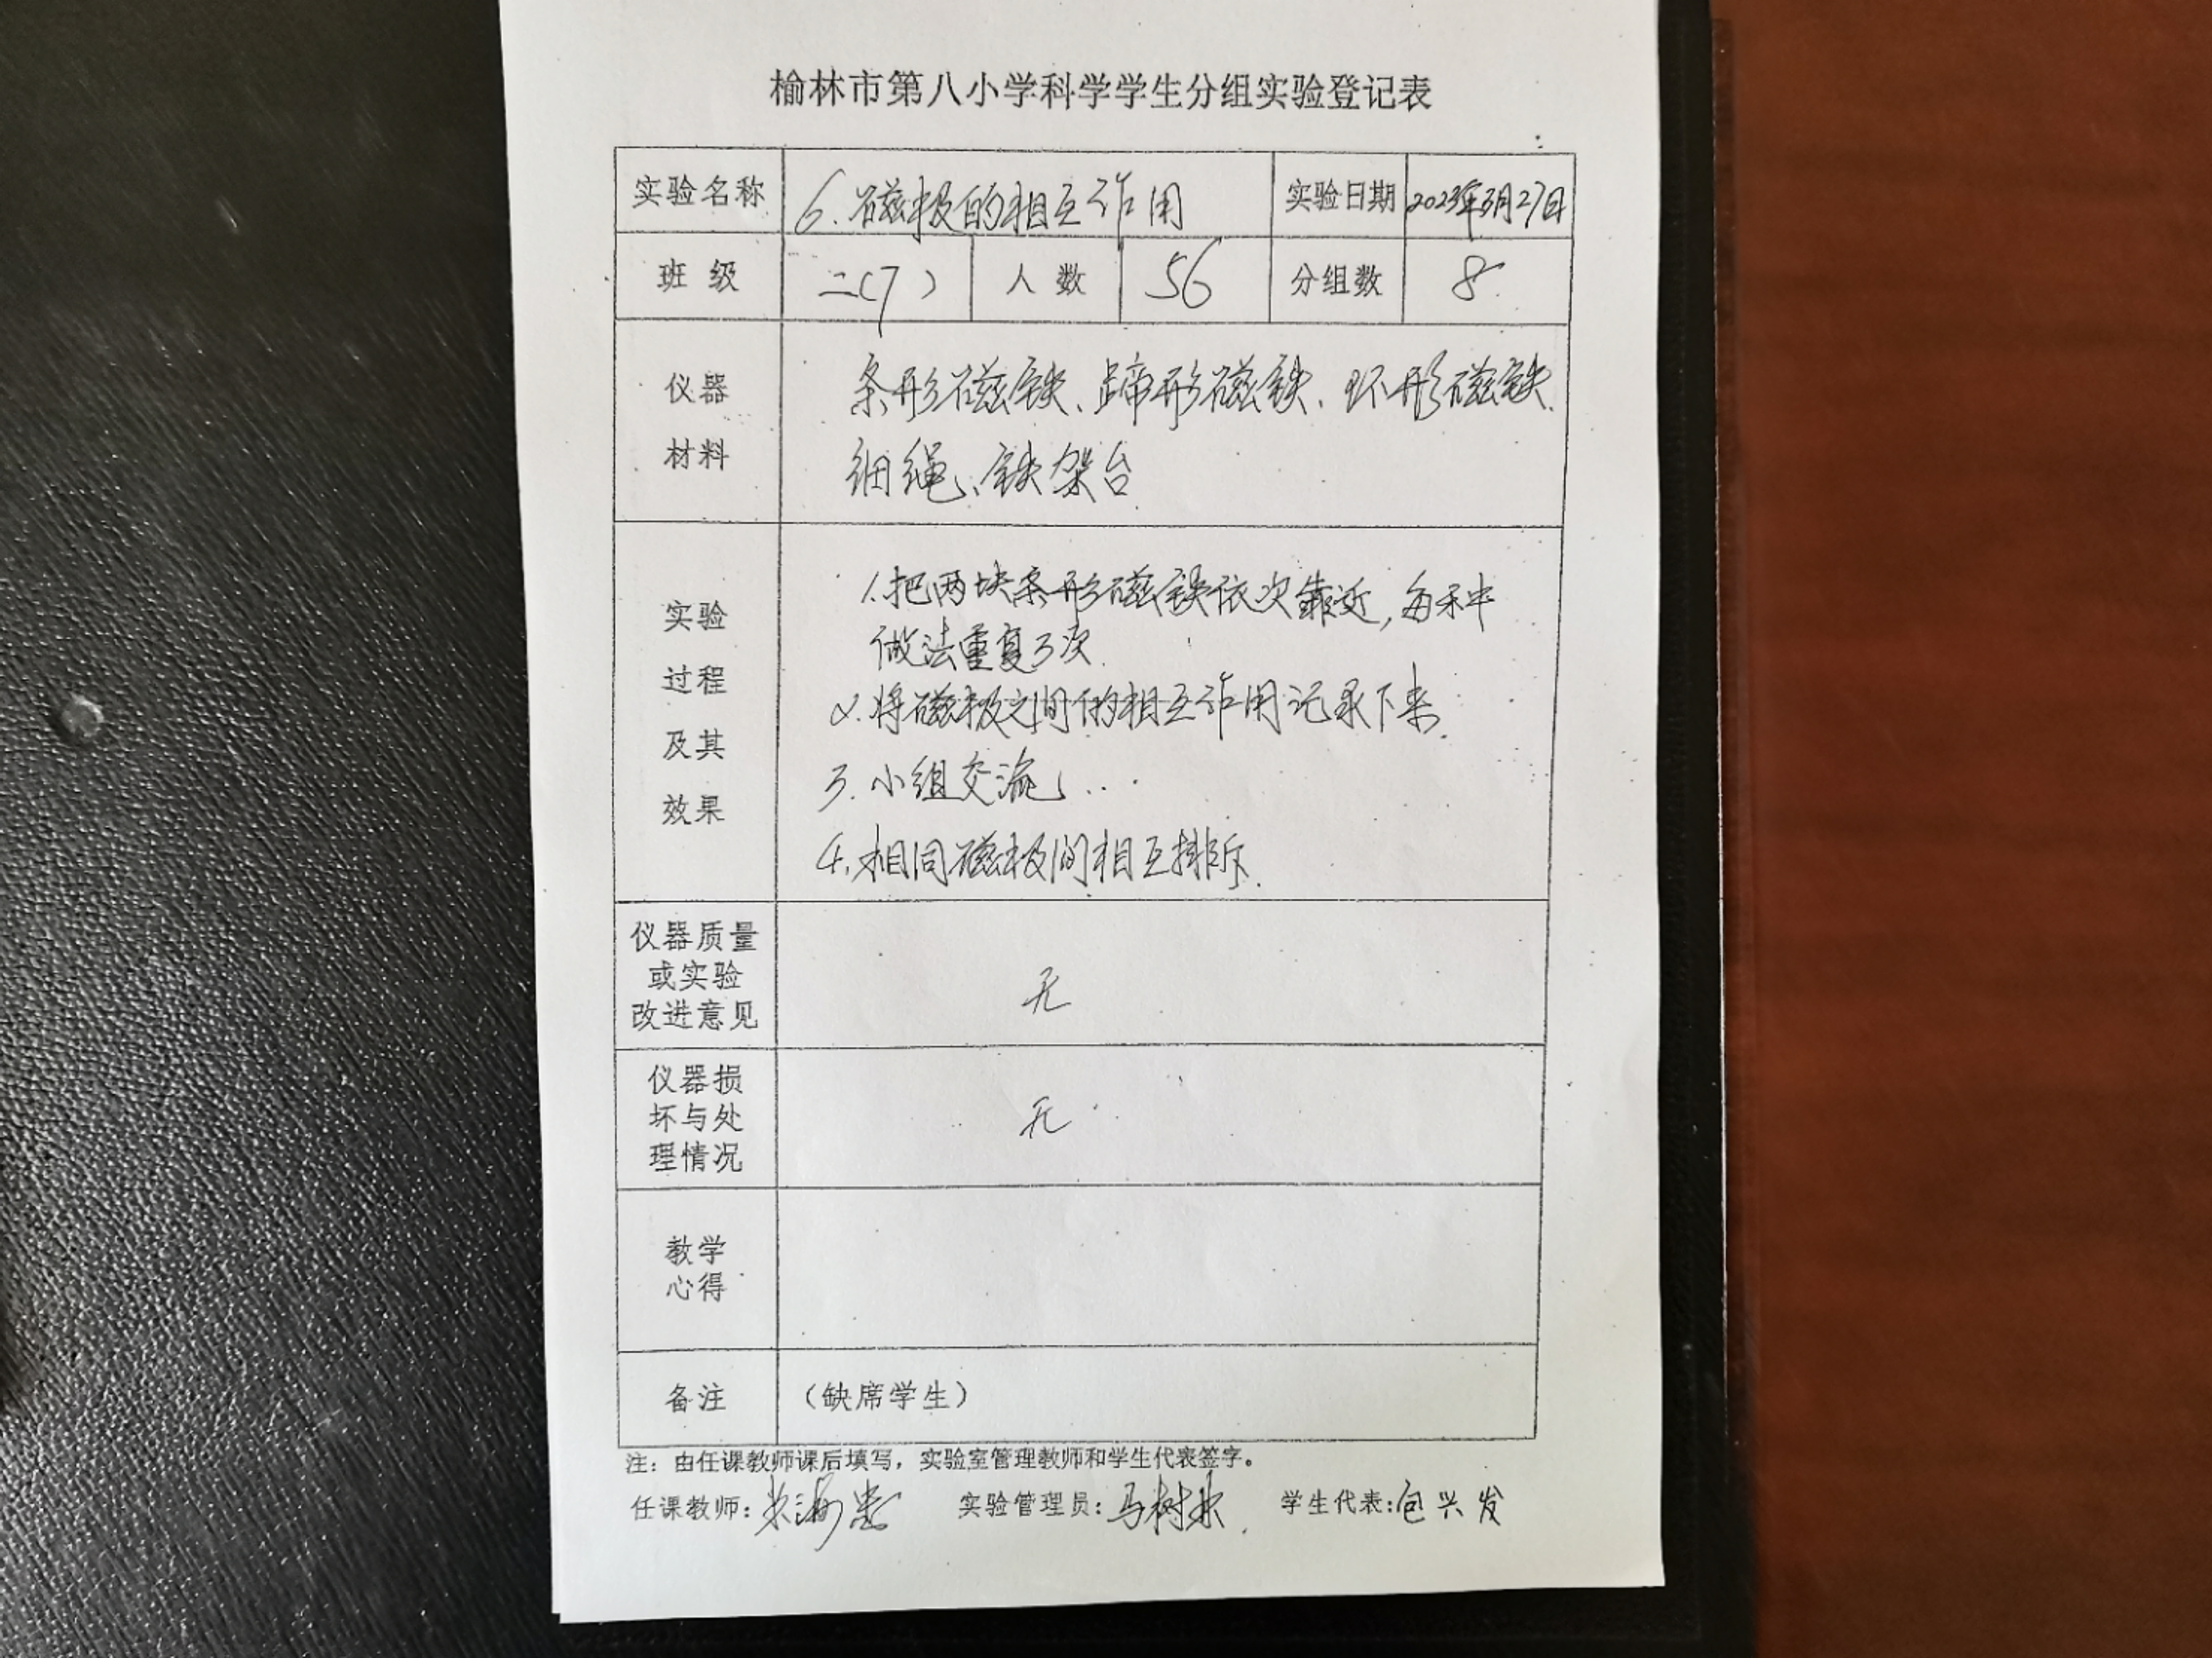 榆林市第八小学科学学生分组实验登记表
实验名称 6.磁极的相互作用 实验日期 2023年3月27日
班 级 二(7) 人 数 56 分组数 8
仪器
材料
条形磁铁、蹄形磁铁、环形磁铁
细绳、铁架台
实验
过程
及其
效果
1.把两块条形磁铁依次靠近,每种
做法重复3次.
2.将磁极之间的相互作用记录下来.
3.小组交流
4.相同磁极间相互排斥.
仪器质量
或实验
改进意见
无
仪器损
坏与处
理情况
无
教学
心得
备注 (缺席学生)
注：由任课教师课后填写，实验室管理教师和学生代表签字。
任课教师: 实验管理员:马树林 学生代表:包兴发